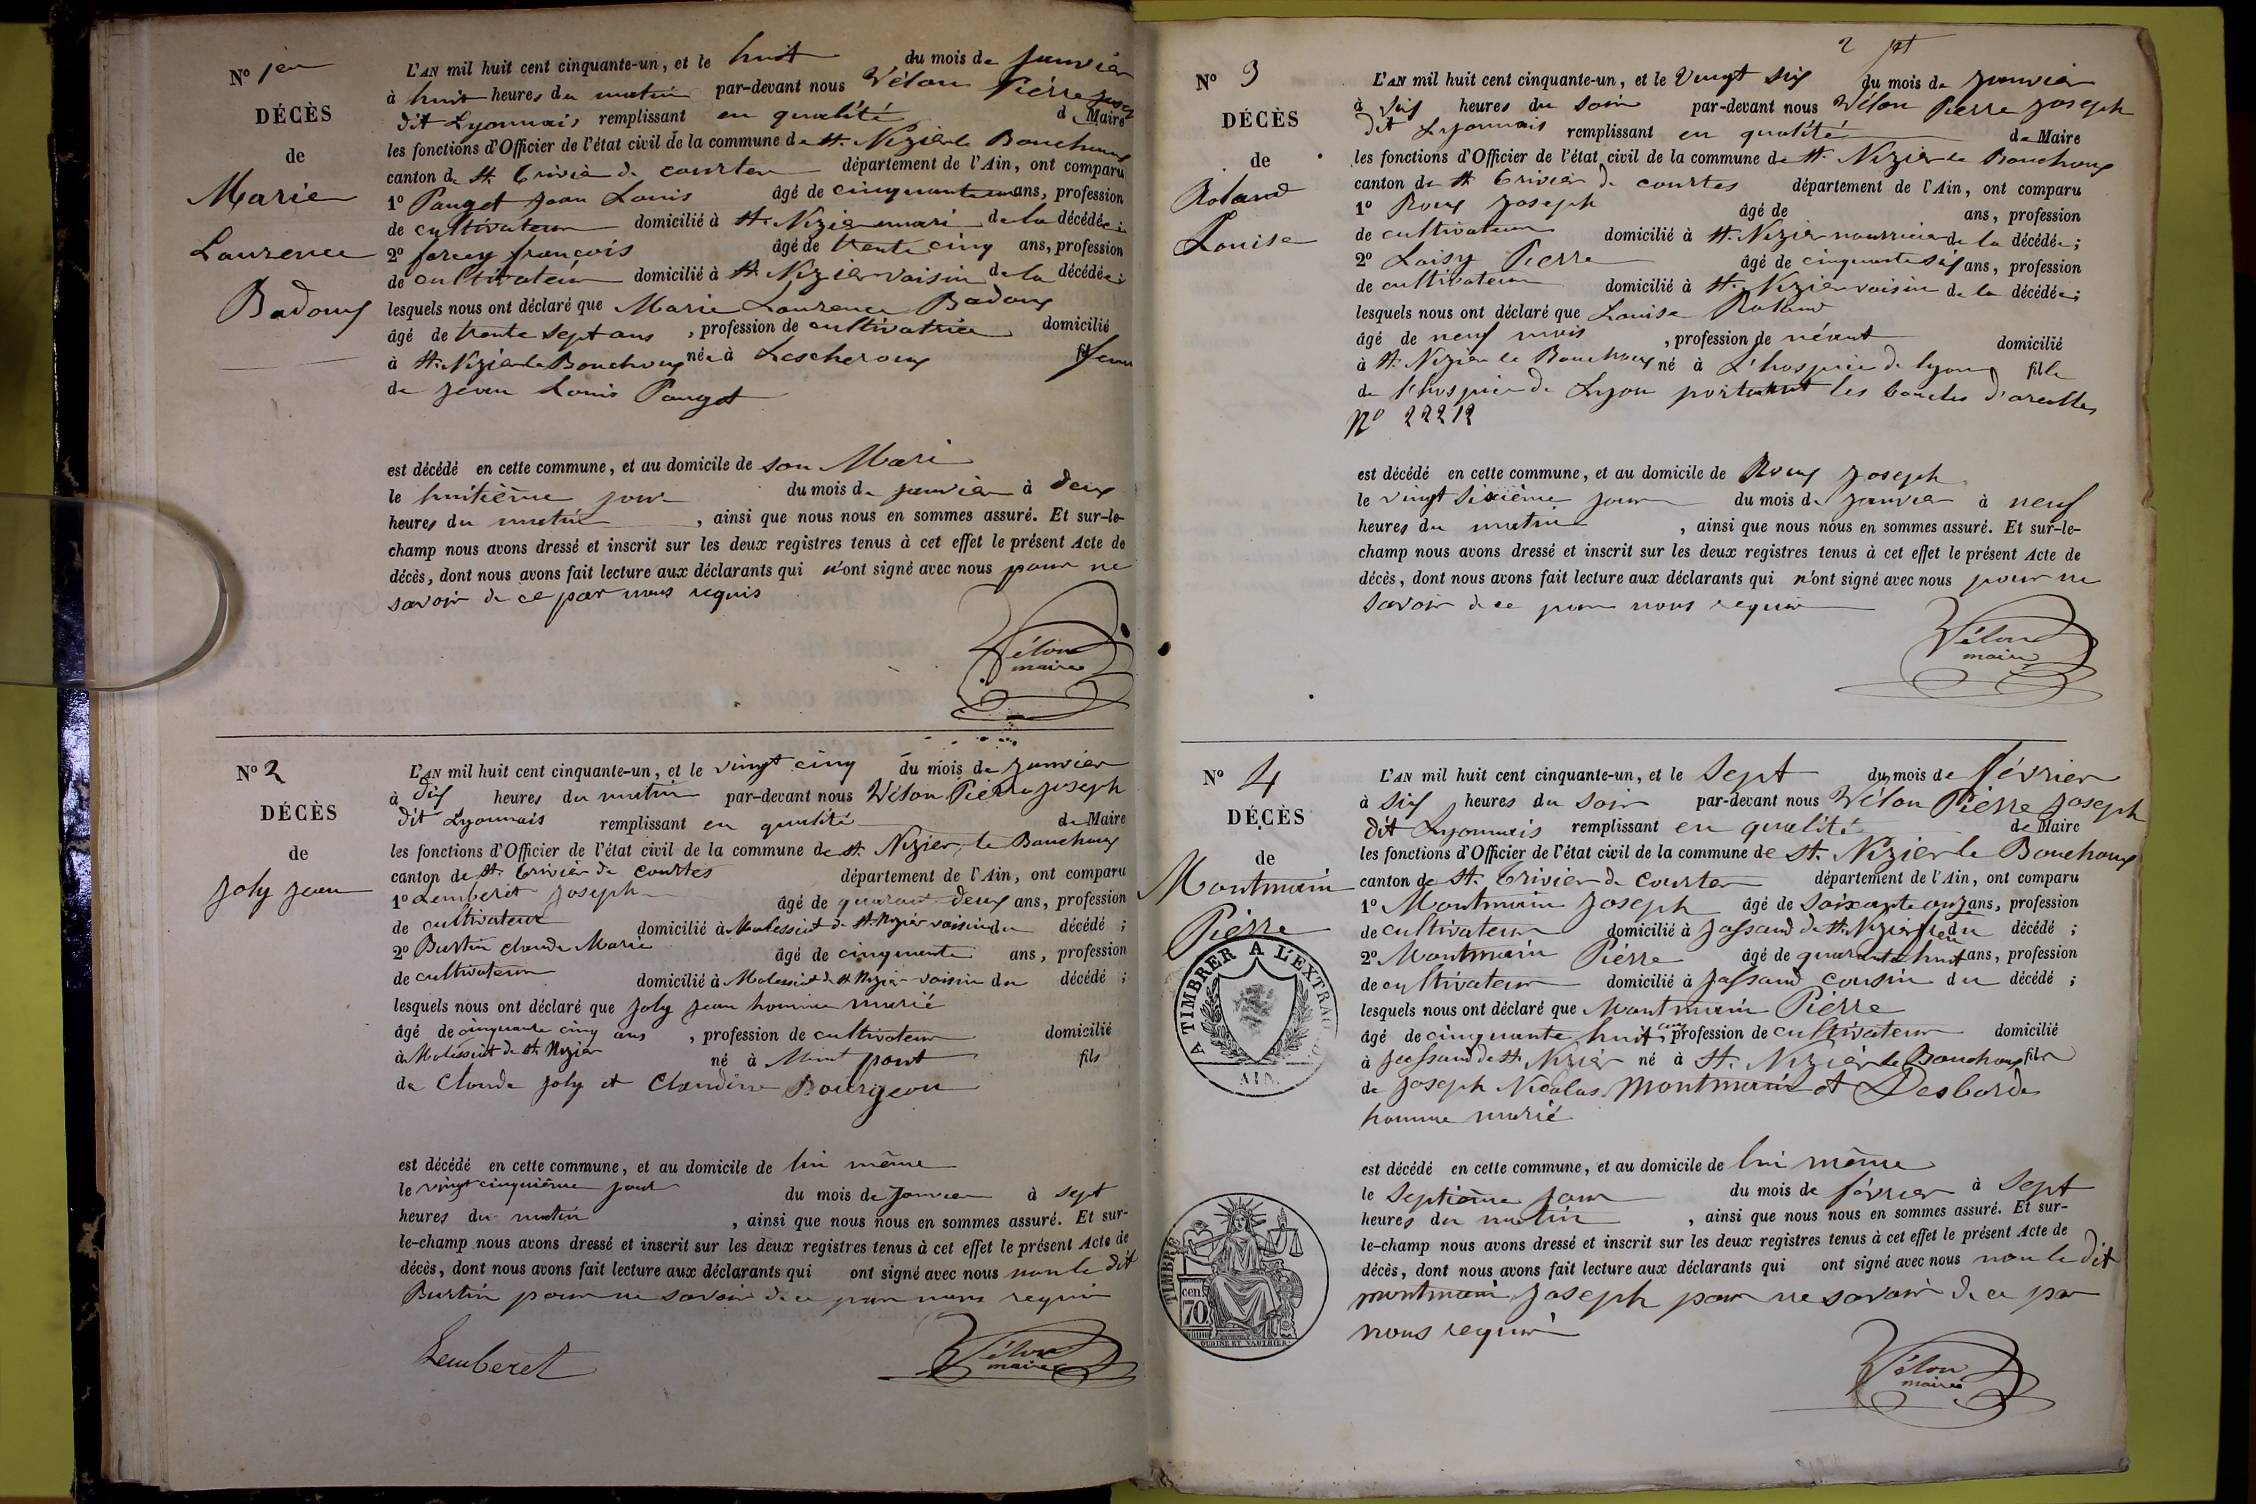 N° 1er
DÉCÈS
de
Marie
Laurence
Badoux
L'AN mil huit cent cinquante-un, et le huit du mois de Janvier
à huit heures du matin par-devant nous Vélon Pierre Joseph
dit Lyonnais remplissant en qualité de Maire
les fonctions d'Officier de l'état civil de la commune de St. Nizier le Bouchoux
canton de St Trivier de courtes département de l'Ain, ont comparu
1° Pauget Jean Louis âgé de cinquante un ans, profession
de cultivateur domicilié à St. Nizier mari de la décédée;
2° forey françois âgé de trente cinq ans, profession
de cultivateur domicilié à St Nizier voisin de la décédée;
lesquels nous ont déclaré que Marie Laurence Badoux
âgé de trente sept ans, profession de cultivatrice domicilié
à St. Nizier le Bouchoux née à Lescheroux femme
de Jean Louis Pauget
est décédé en cette commune, et au domicile de son Mari
le huitième jour du mois de janvier à deux
heures du matin, ainsi que nous nous en sommes assuré. Et sur-le-
champ nous avons dressé et inscrit sur les deux registres tenus à cet effet le présent Acte de
décès, dont nous avons fait lecture aux déclarants qui n'ont signé avec nous pour ne
savoir de ce par nous requis
Vélon
maire
N° 2
DÉCÈS
de
Joly Jean
L'AN mil huit cent cinquante-un, et le vingt cinq du mois de Janvier
à dix heures du matin par-devant nous Vélon Pierre Joseph
dit Lyonnais remplissant en qualité de Maire
les fonctions d'Officier de l'état civil de la commune de St. Nizier le Bouchoux
canton de St. Trivier de courtes département de l'Ain, ont comparu
1° Lemberet Joseph âgé de quarant deux ans, profession
de cultivateur domicilié à Molessiat de St. Nizier voisin du décédé;
2° Burtin claude Marie âgé de cinquante ans, profession
de cultivateur domicilié à Molessiat de St Nizier voisin du décédé;
lesquels nous ont déclaré que Joly Jean homme marié
âgé de cinquante cinq ans, profession de cultivateur domicilié
à Molessiat de St. Nizier né à Mant pont fils
de Claude Joly et Claudine Bourgeon
est décédé en cette commune, et au domicile de lui même
le vingt cinquième jour du mois de Janvier à sept
heures du matin, ainsi que nous nous en sommes assuré. Et sur-
le-champ nous avons dressé et inscrit sur les deux registres tenus à cet effet le présent Acte de
décès, dont nous avons fait lecture aux déclarants qui ont signé avec nous non le dit
Burtin pour ne savoir de ce par nous requis
Lemberet
Vélon
maire
2
N° 3
DÉCÈS
de
Roland
Louise
L'AN mil huit cent cinquante-un, et le vingt six du mois de Janvier
à six heures du soir par-devant nous Vélon Pierre Joseph
dit Lyonnais remplissant en qualité de Maire
les fonctions d'Officier de l'état civil de la commune de St. Nizier le Bouchoux
canton de St Trivier de courtes département de l'Ain, ont comparu
1° Roux Joseph âgé de ans, profession
de cultivateur domicilié à St. Nizier nourricier de la décédée;
2° Loisy Pierre âgé de cinquante six ans, profession
de cultivateur domicilié à St. Nizier voisin de la décédée;
lesquels nous ont déclaré que Louise Roland
âgé de neuf mois, profession de néent domicilié
à St. Nizier le Bouchoux né à L'hospice de lyon fille
de l'hospice de Lyon portant les boucles d'oreilles
N° 22212
est décédé en cette commune, et au domicile de Roux Joseph
le vingt sixième jour du mois de Janvier à neuf
heures du matin, ainsi que nous nous en sommes assuré. Et sur-le-
champ nous avons dressé et inscrit sur les deux registres tenus à cet effet le présent Acte de
décès, dont nous avons fait lecture aux déclarants qui n'ont signé avec nous pour ne
savoir de ce par nous requis
Vélon
maire
N° 4
DÉCÈS
de
Montmain
Pierre
L'AN mil huit cent cinquante-un, et le Sept du mois de février
à six heures du soir par-devant nous Vélon Pierre Joseph
dit Lyonnais remplissant en qualité de Maire
les fonctions d'Officier de l'état civil de la commune de St. Nizier le Bouchoux
canton de St. Trivier de courtes département de l'Ain, ont comparu
1° Montmain Joseph âgé de soixante onze ans, profession
de cultivateur domicilié à Jassand de St. Nizier du décédé;
2° Montmain Pierre âgé de quarante huit ans, profession
de cultivateur domicilié à Jassand cousin du décédé;
lesquels nous ont déclaré que Montmain Pierre
âgé de cinquante huit ans, profession de cultivateur domicilié
à Jassand de St. Nizier né à St. Nizier le Bouchoux fils
de Joseph Nicolas Montmain et Desbordes
homme marié
est décédé en cette commune, et au domicile de lui même
le septième jour du mois de février à sept
heures du matin, ainsi que nous nous en sommes assuré. Et sur-
le-champ nous avons dressé et inscrit sur les deux registres tenus à cet effet le présent Acte de
décès, dont nous avons fait lecture aux déclarants qui ont signé avec nous non le dit
montmain Joseph pour ne savoir de ce par
nous requis
Vélon
maire
A TIMBRER A L'EXTRAO
AIN.
TIMBRE
cen.
70